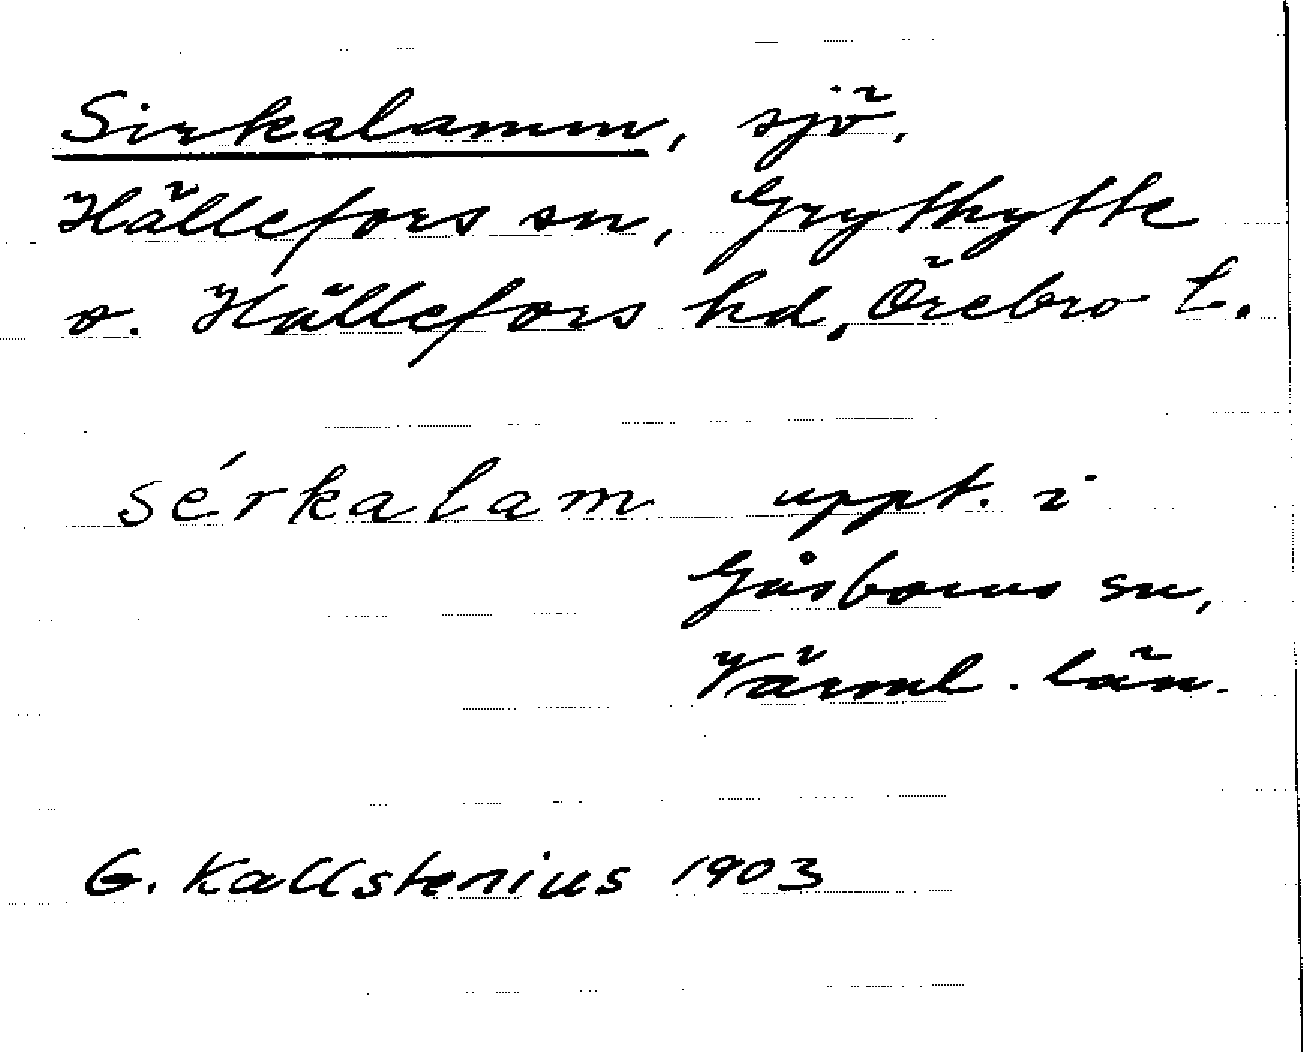 Sirkalamm, sjö.
Hällefors sn, Grythytte
o. Hällefors hd, Örebro l.
sérkalam uppt. i
Gåsborns sn,
Värml. län.
G. Kallstenius 1903